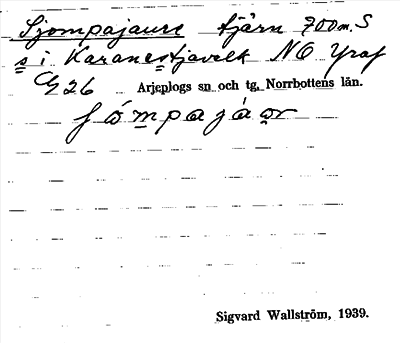 Sjompajaure tjärn 700 m. S
s i Karanestjavelk NO Yraf
G 26 Arjeplogs sn och tg. Norrbottens län.
jómpajáor
Sigvard Wallström, 1939.